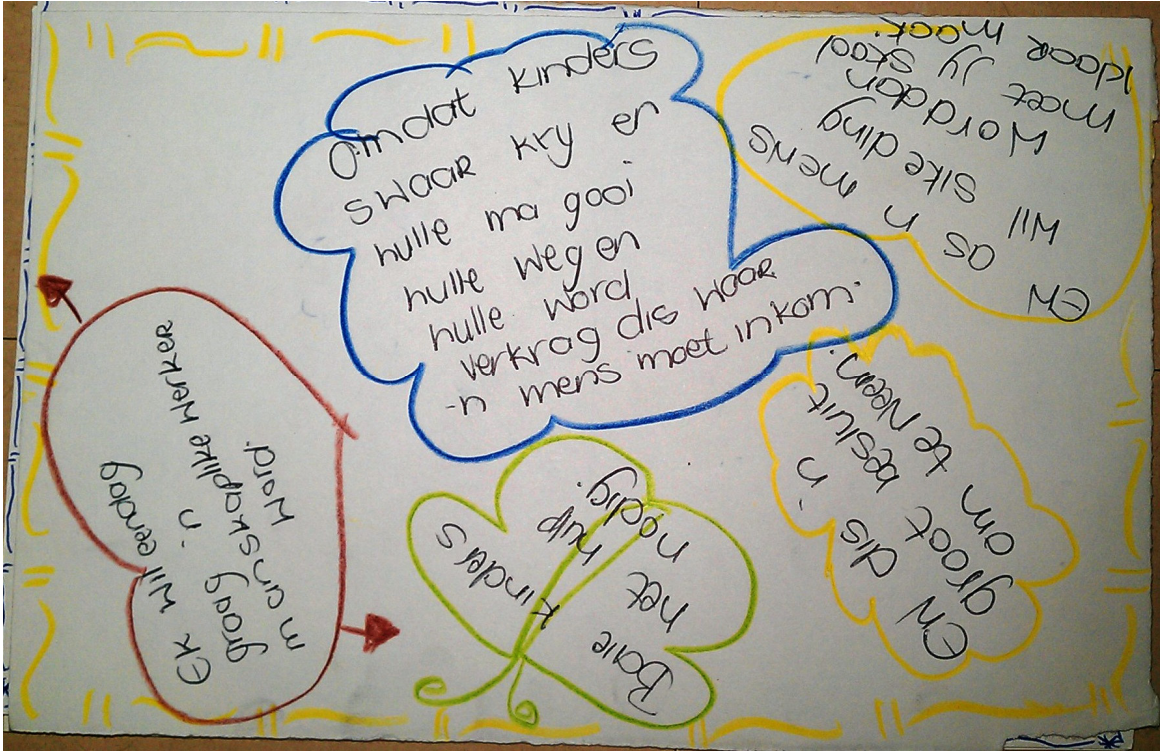 Ek wil eendag
graag 'n
maanskaplike werker
word.
Omdat kinders
swaar kry en
hulle ma gooi
hulle weg en
hulle word
verkrag dis waar
-n mens moet inkom.
Baie kinders
het hulp
nodig.
EN dis 'n
groot besluit
om te Neem.
EN
as n mens
wil sike ding
Word dan
moet jy skool
klaar maak.